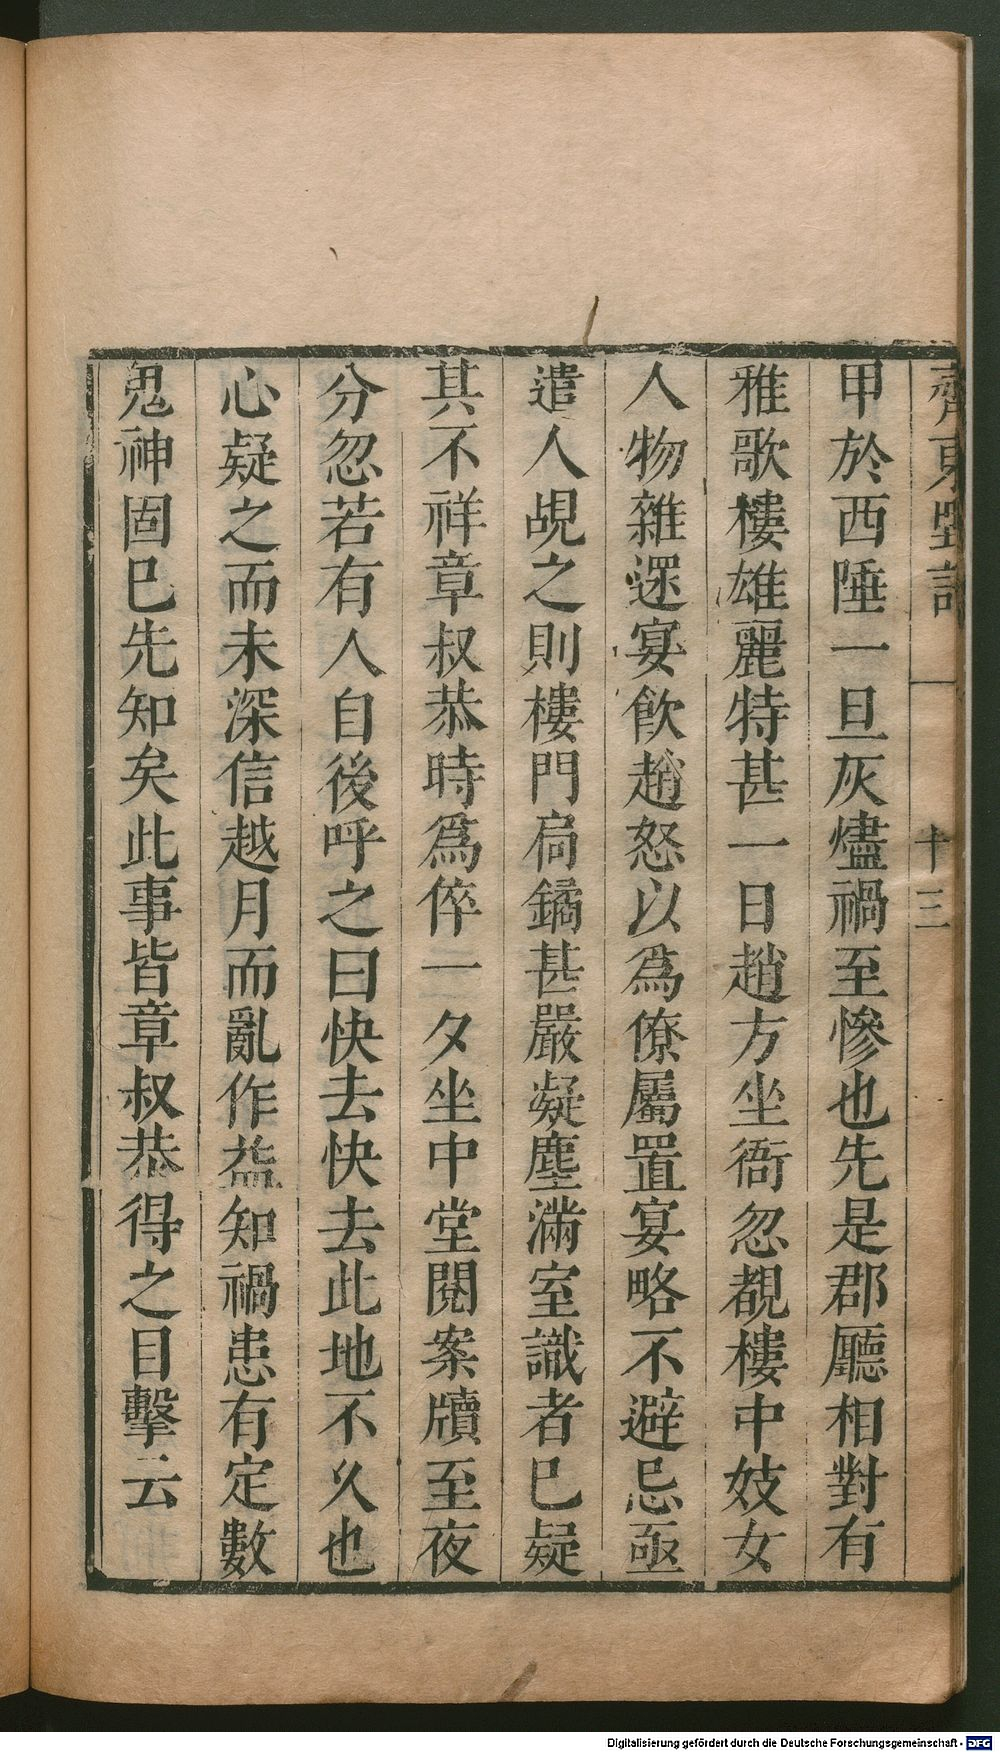 齊東埜語 一 十三
甲於西陲一旦灰燼禍至慘也先是郡廳相對有
雅歌樓雄麗特甚一日趙方坐衙忽覩樓中妓女
人物雜遝宴飲趙怒以爲僚屬置宴略不避忌亟
遣人覘之則樓門扃鐍甚嚴凝塵滿室識者已疑
其不祥章叔恭時爲倅一夕坐中堂閱案牘至夜
分忽若有人自後呼之曰快去快去此地不久也
心疑之而未深信越月而亂作益知禍患有定數
鬼神固已先知矣此事皆章叔恭得之目擊云
Digitalisierung gefördert durch die Deutsche Forschungsgemeinschaft - DFG